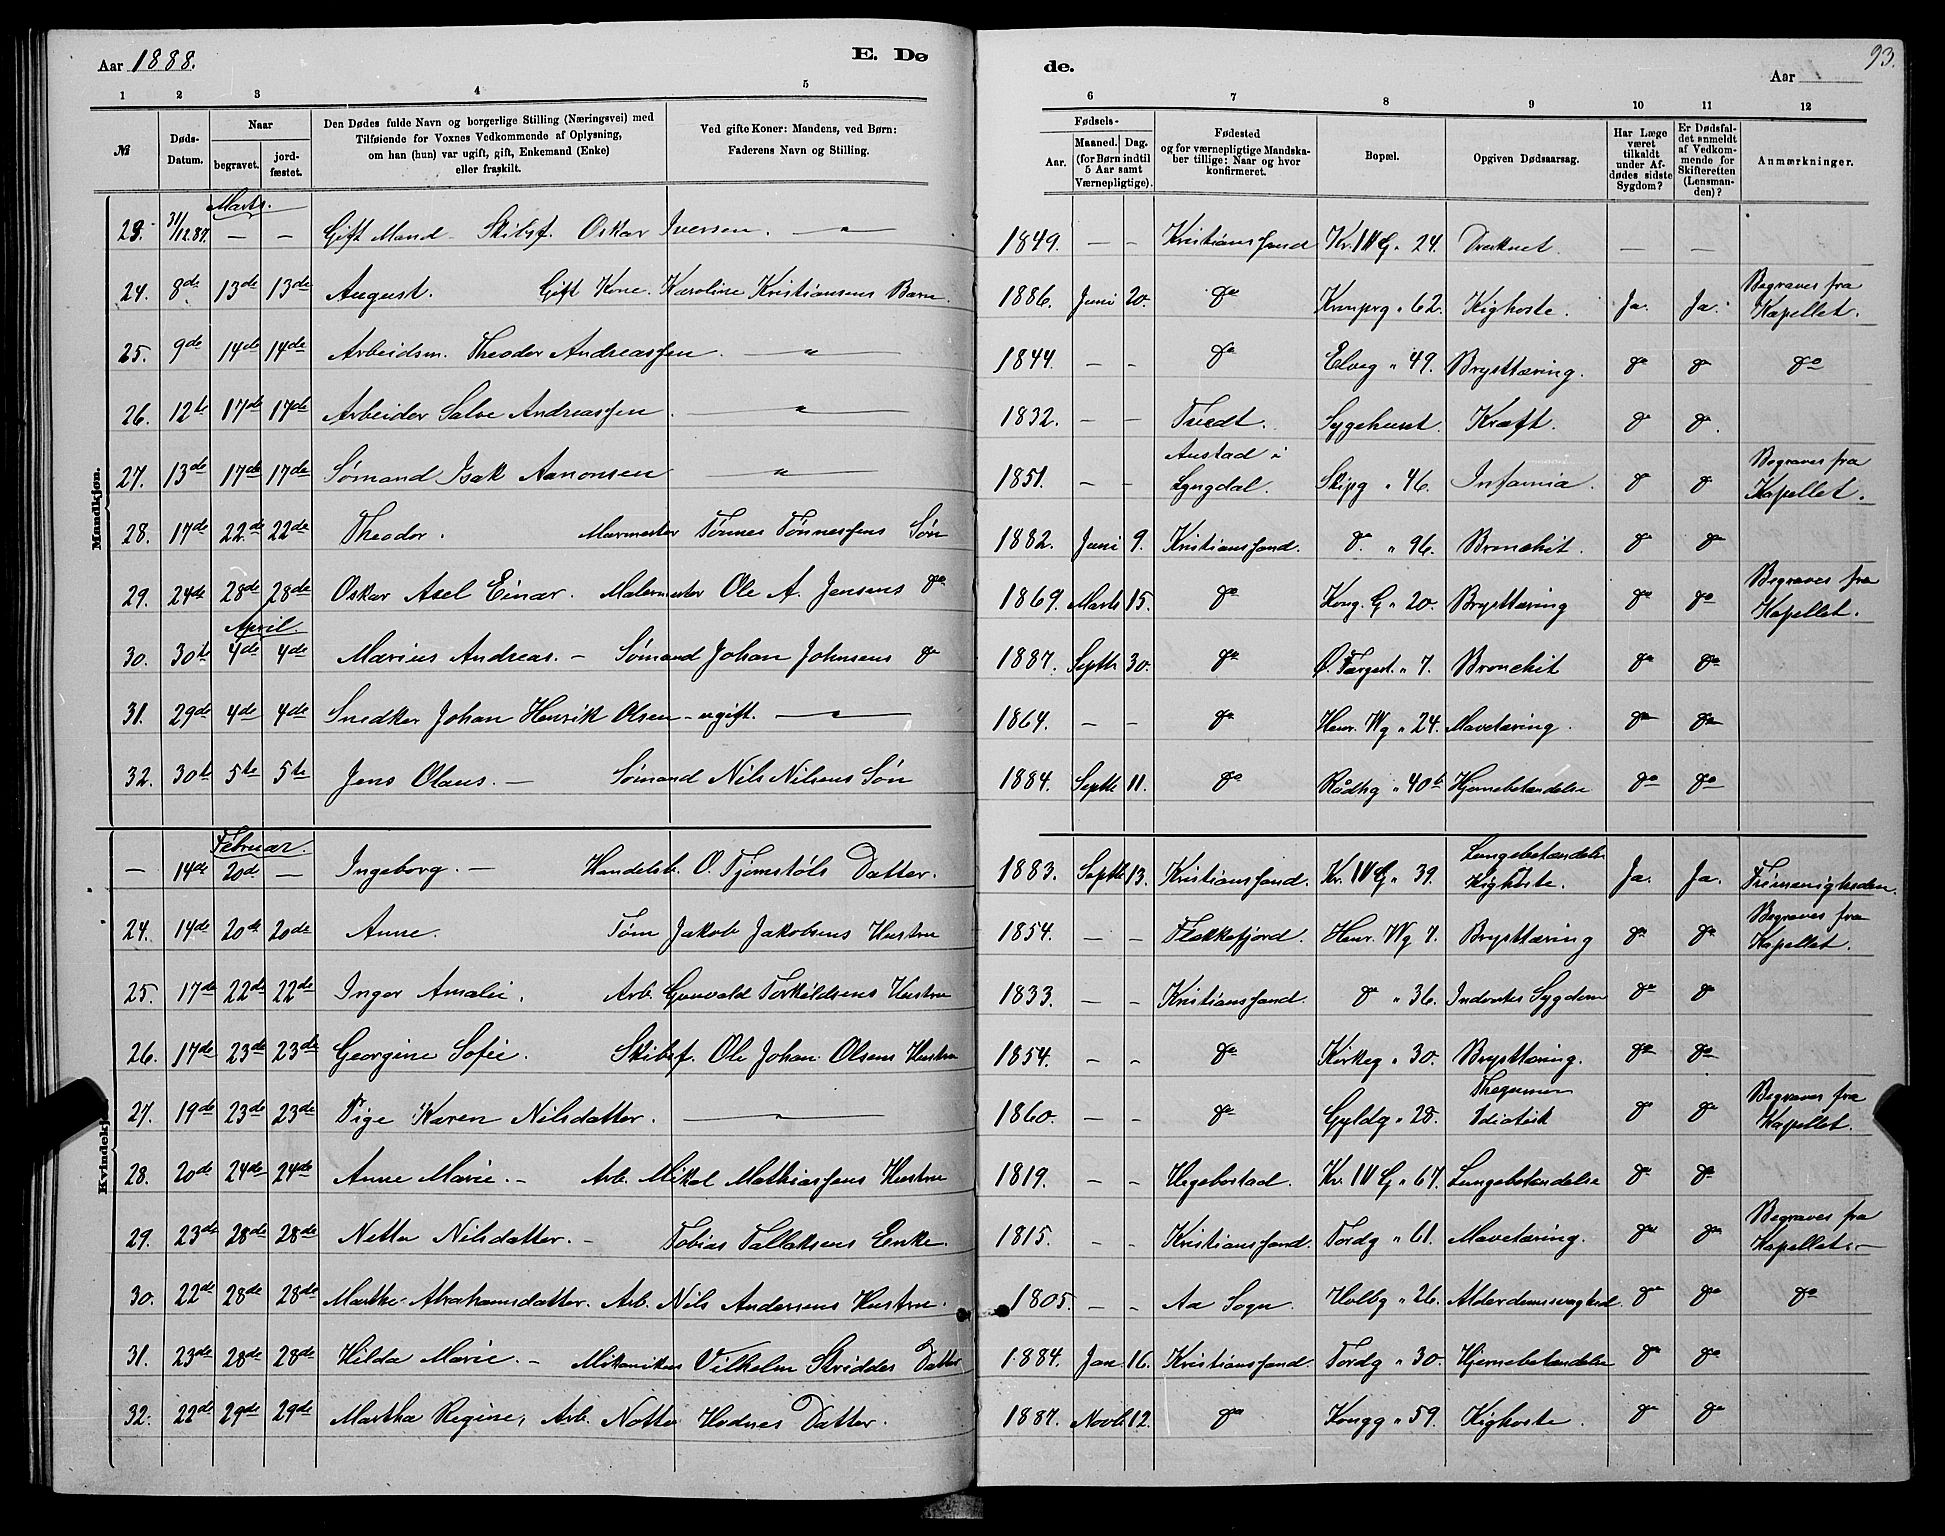 Aar 1888.
E. Dø
de.
93.
Aar
1 2 3 4 5 6 7 8 9 10 11 12
№
Døds-Datum.
Naar
begravet.
jord-fæstet.
Den Dødes fulde Navn og borgerlige Stilling (Næringsvei) med
Tilføiende for Voxnes Vedkommende af Oplysning,
om han (hun) var ugift, gift, Enkemand (Enke)
eller fraskilt.
Ved gifte Koner: Mandens, ved Børn:
Faderens Navn og Stilling.
Fødsels-
Aar.
Maaned. Dag.
(for Børn indtil
5 Aar samt
Værnepligtige).
Fødested
og for værnepligtige Mandska-
ber tillige: Naar og hvor
konfirmeret.
Bopæl.
Opgiven Dødsaarsag.
Har Læge
været
tilkaldt
under Af-
dødes sidste
Sygdom?
Er Dødsfal-
det anmeldt
af Vedkom-
mende for
Skifteretten
(Lensman-
den)?
Anmærkninger.
Mandkjøn.
Marts.
23. 31/12.87. — — Gift Mand Skibsf. Oskar Iversen. — " — 1849. — — Kristianssand Kr. IV G. " 24. Druknet. — —
24. 8de 13de 13de August. Gift Kone Karoline Kristiansens Barn. 1886. Juni 20. do Kronprg " 62. Kighoste. Ja. Ja. Begraves fra Kapellet.
25. 9de 14de 14de Arbeidsm. Theodor Andreassen. — " — 1844. — — do Elveg " 49. Brysttæring. do do do
26. 12te 17de 17de Arbeider Salve Andreassen. — " — 1832. — — Tveedt. Sygehuset. Kræft. do do.
27. 13de 17de 17de Sømand Isak Aanonsen — " — 1851. — — Austad i Lyngdal. Skipg " 46. Insania. do do Begraves fra Kapellet.
28. 17de 22de 22de Theodor. Murmester Tønnes Tønnessens Søn 1882. Juni 9. Kristianssand. do. " 96. Bronchit. do do
29. 24de 28de 28de Oskar Axel Einar. Malermester Ole A. Jensens do 1869. Marts 15. do Kong. G " 20. Brysttæring do do Begraves fra Kapellet.
April.
30. 30te 4de 4de Marius Andreas. — Sømand Johan Johnsens do 1887. Septbr 30. do Ø. Torgest. " 7. Bronchit do do
31. 29de 4de 4de Snedker Johan Henrik Olsen — ugift. — " — 1864. — — do Henr. Wg " 24. Mavetæring. do do
32. 30te 5te 5te Jens Olaus. — Sømand Nils Nilsens Søn 1884. Septbr 11. do Rådhg " 40b Hjernebetændelse do do
Kvindekj.
Februar.
— 14de 20de — Ingeborg. — Handelsb. O. Tjomstøls Datter. 1883. Septbr 13. Kristianssand. Kr. IV G. " 39. Lungebetændelse Kighoste. Ja. Ja. Frimenigheden.
24. 14de 20de 20de Anne. Tøm Jakob Jakobsens Hustru 1854. — — Flekkefjord. Henr. Wg 7. Brysttæring do do Begraves fra Kapellet.
25. 17de 22de 22de Inger Amalie. Arb. Gunvald Torkildsens Hustru 1833. — — Kristianssand. do " 36. Indvortes Sygdom do do
26. 17de 23de 23de Georgine Sofie. Skibsf. Ole Johan Olsens Hustru 1854. — — do Kirkeg " 30. Brysttæring. do do
27. 19de 23de 23de Pige Karen Nilsdatter. — " — 1860. — — do Gyldg " 28. Idiotisk do do Begraves fra Kapellet.
28. 20de 24de 24de Anne Marie. — Arb. Mikal Mathiassens Hustru 1819. — — Hegebostad. Kr. IV G " 67. Lungebetændelse do do
29. 23de 28de 28de Netta Nilsdatter. — Tobias Tallaksens Enke. 1815. — — Kristianssand. Tordg " 61. Mavetæring. do do Begraves fra Kapellet. —
30. 22de 28de 28de Marthe Abrahamsdatter. Arb. Nils Andersens Hustru. 1805. — — Aa Sogn. Holbg " 26. Alderdomssvaghed. do do do
31. 23de 28de 28de Hilda Marie. — Mikanikus Vilhelm Skriddes Datter 1884. Jan. 16. Kristianssand. Tordg " 30. Hjernebetændelse do do
32. 22de 29de 29de Martha Regine, Arb. Notto Hodnes Datter. 1887. Novbr 12. do Kongg " 59. Kighoste. do do